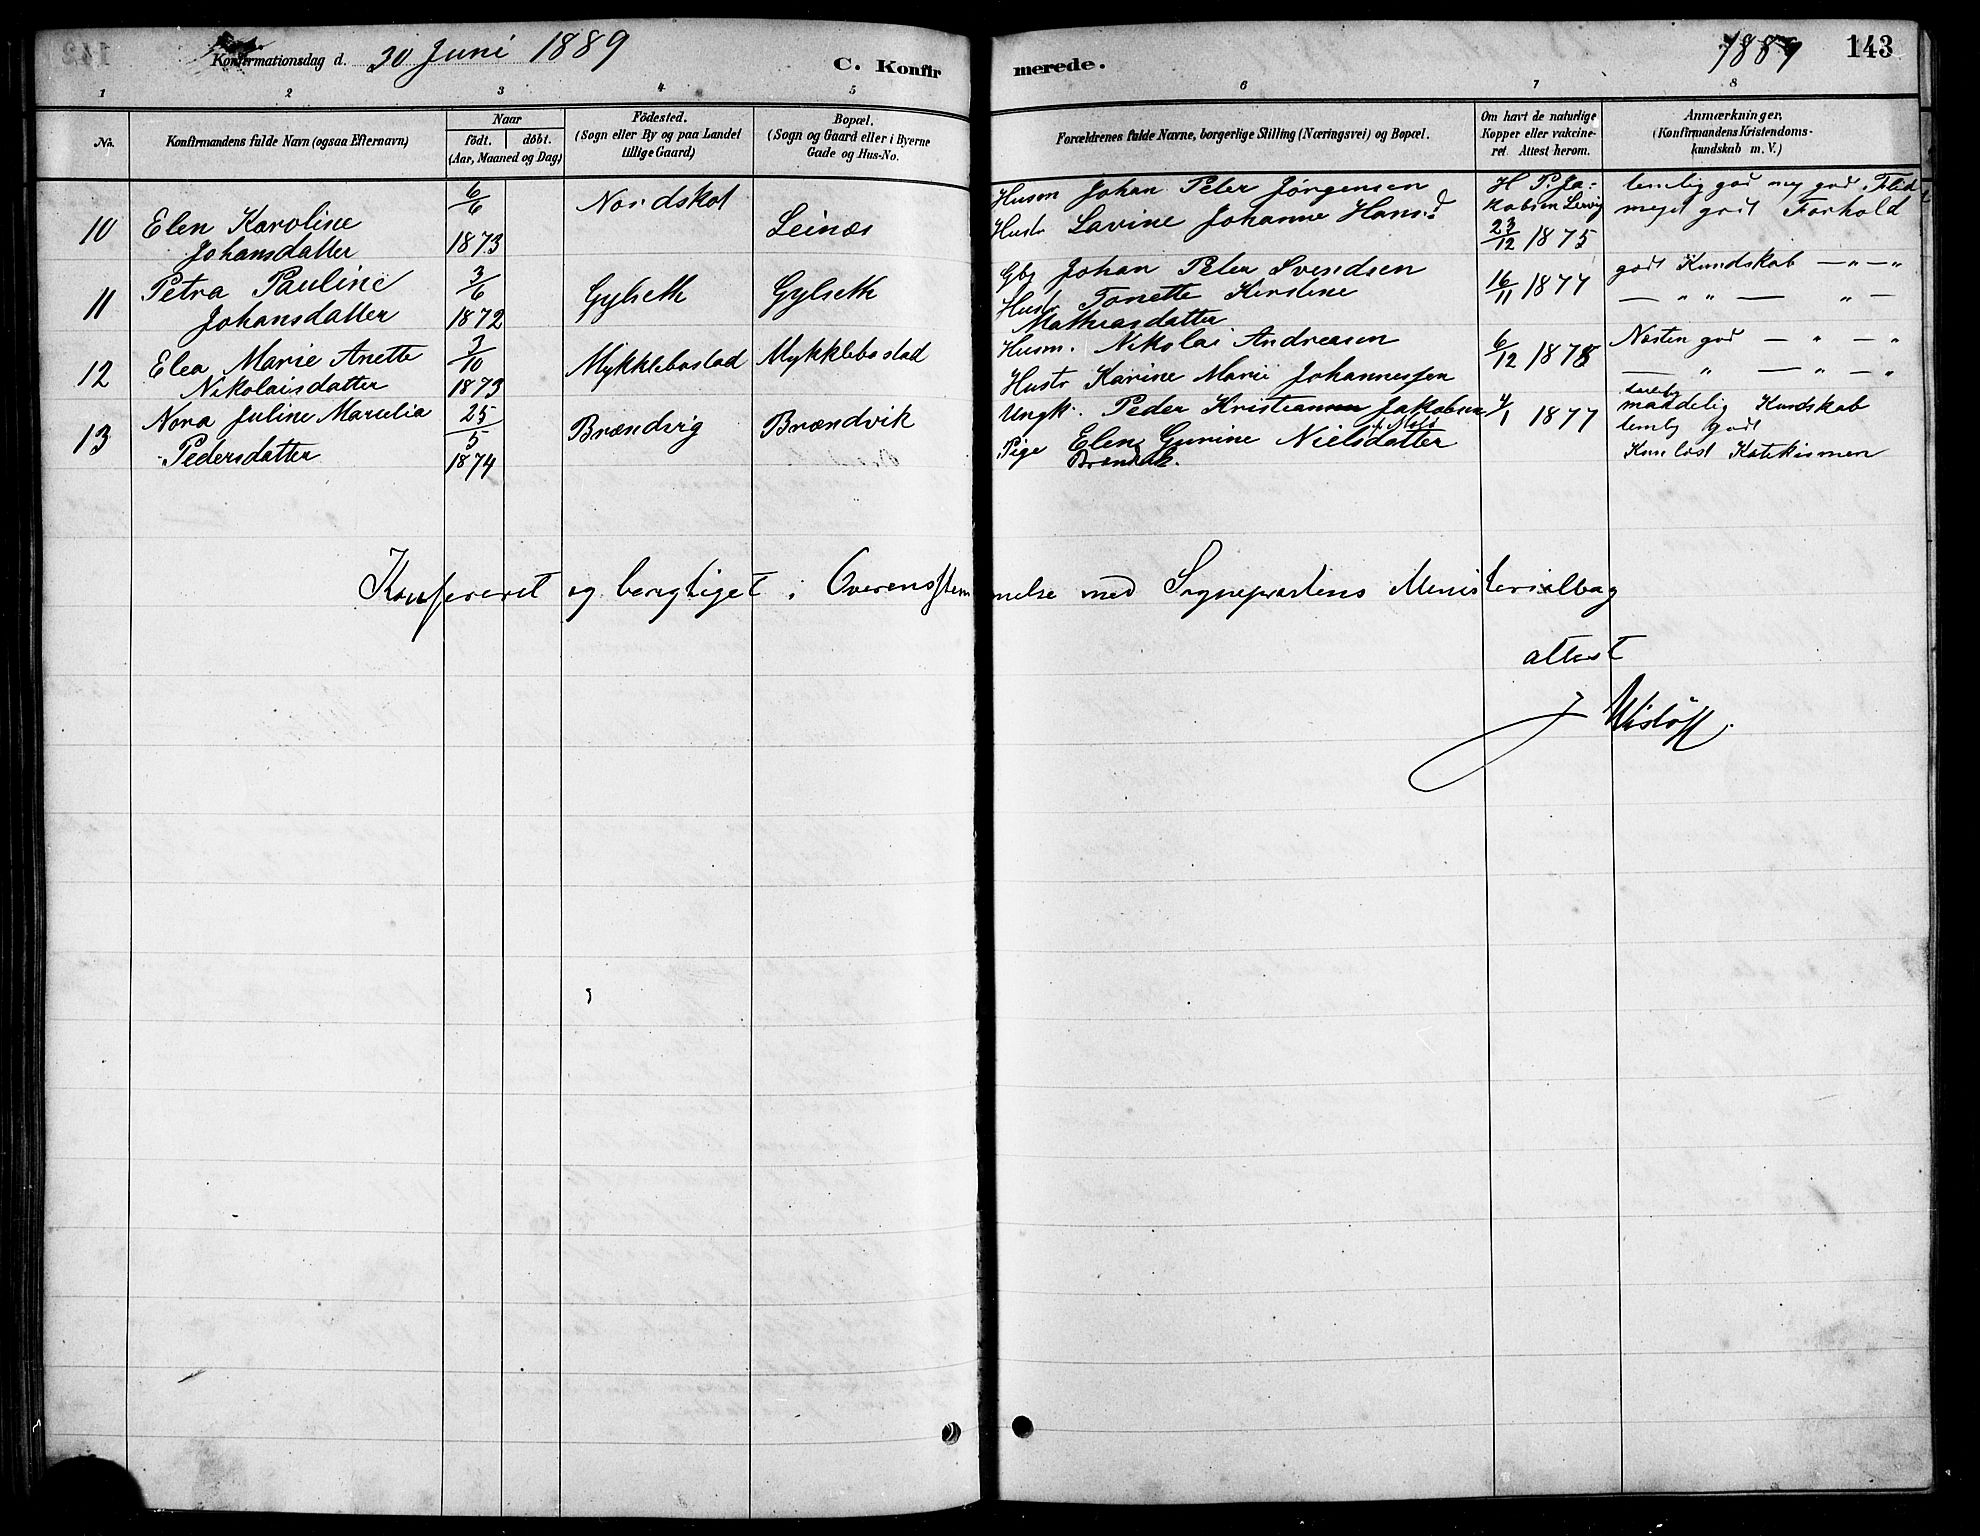 Konfirmationsdag d. 30 Juni 1889
C. Konfirmerede.
1889
143
1 2 3 4 5 6 7 8
No.
Konfirmandens fulde Navn (ogsaa Efternavn)
Naar
födt. döbt.
(Aar, Maaned og Dag)
Födested.
(Sogn eller By og paa Landet
tillige Gaard)
Bopæl.
(Sogn og Gaard eller i Byerne
Gade og Hus-No.
Forældrenes fulde Navne, borgerlige Stilling (Næringsvei) og Bopæl.
Om havt de naturlige
Kopper eller vakcine-
ret Attest herom.
Anmærkninger.
(Konfirmandens Kristendoms-
kundskab m. V.)
10 Elen Karoline
Johansdatter
6/6
1873
Nordskot
Leinæs
Husm Johan Peter Jørgensen
Hustr Lavine Johanne Hansd
H P. Ja:
kobsen Lervig
23/12 1875
temlig god meg god Flid
meget godt Forhold
11 Petra Pauline
Johansdatter
3/6
1872
Gylseth
Gylseth
Gbr Johan Peter Svendsen
Hustr Tonette Kirstine
Mathiasdatter
16/11 1877
godt Kundskab — " — "
— " " — " —
12 Elea Marie Anette
Nikolaisdatter
3/10
1873
Mykklebostad
Mykklebostad
Husm. Nikolai Andreasen
Hustr Karine Marie Johannessen
6/12 1878
Næsten god — " — "
— " — " — "
13 Nora Juline Marselia
Pedersdatter
25/5
1874
Brændvig
Brændvik
Ungk. Peder Kristian Jakobsen
Pige Elen Gurine Nielsdatter
Brændvik.
4/1 1877
maadelig Kundskab
temlig godt
Kun læst Katekismen
Konfereret og berigtiget i Overensstemmelse med Sognepræstens Ministerialbog
attest
J Wisløff.